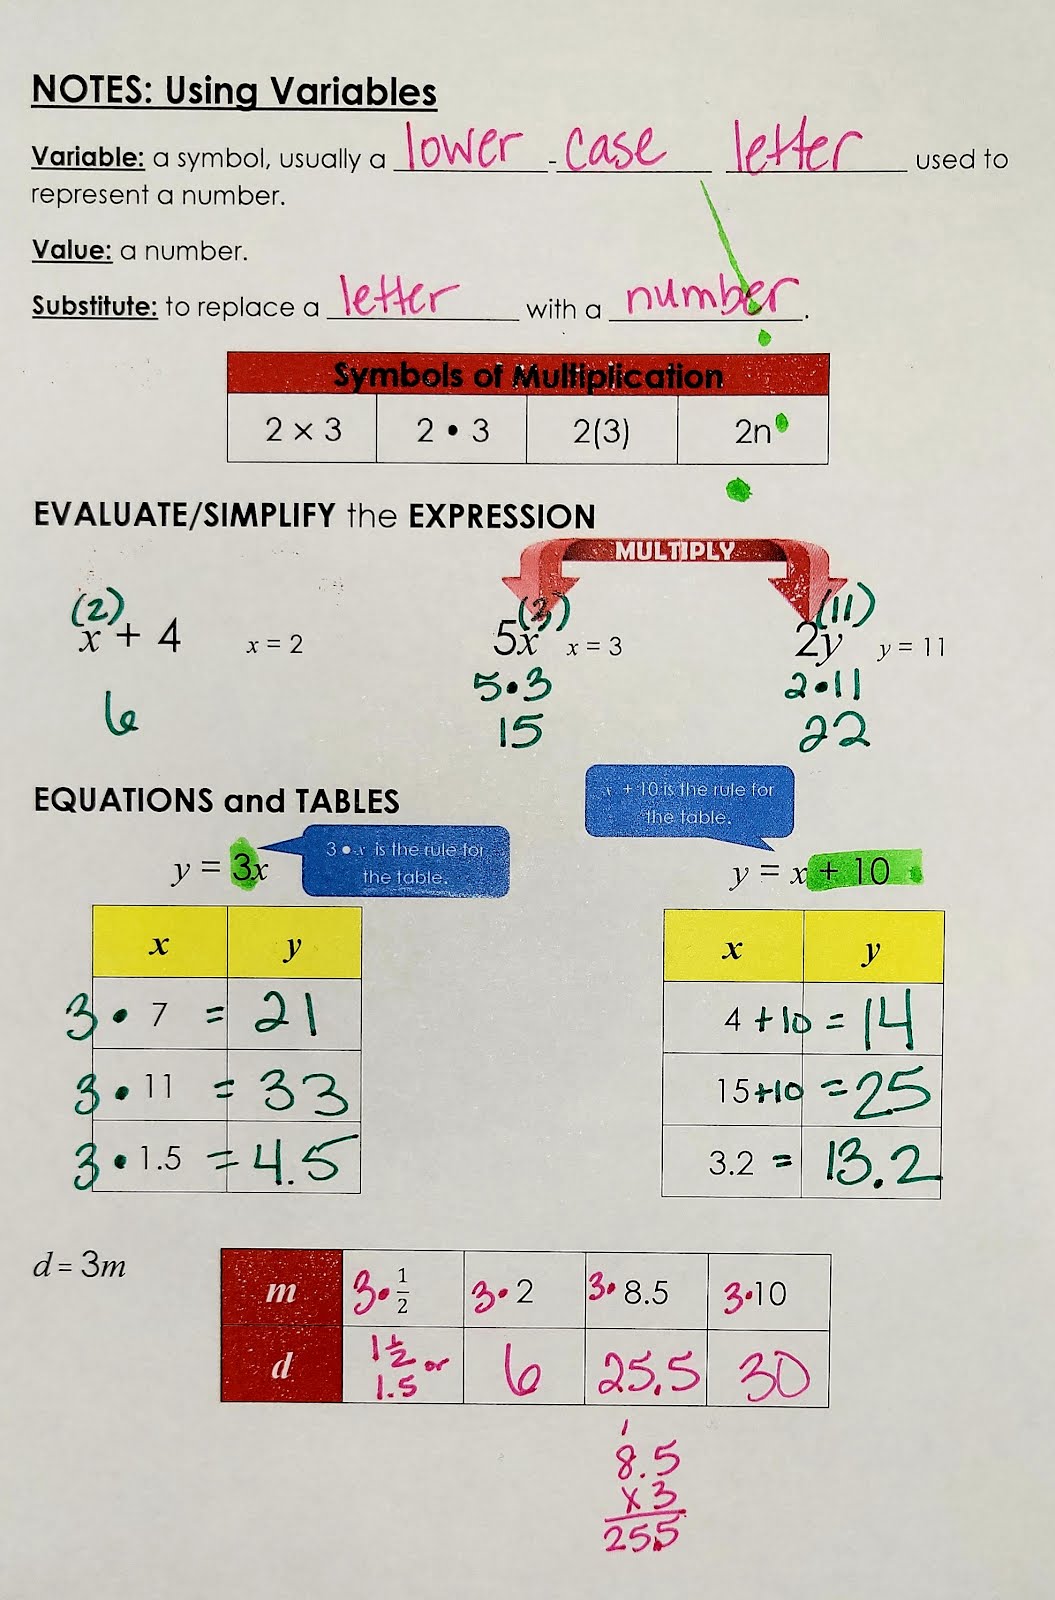 NOTES: Using Variables
Variable: a symbol, usually a lower - case letter used to
represent a number.
Value: a number.
Substitute: to replace a letter with a number.
Symbols of Multiplication
2 × 3 2 • 3 2(3) 2n
EVALUATE/SIMPLIFY the EXPRESSION
MULTIPLY
(2) (3) (11)
x + 4 x = 2 5x x = 3 2y y = 11
5•3 2•11
6 15 22
EQUATIONS and TABLES
x + 10 is the rule for
the table.
3 • x is the rule for
the table.
y = 3x
y = x + 10
x y
3 • 7 = 21
3 • 11 = 33
3 • 1.5 = 4.5
x y
4 +10 = 14
15 +10 = 25
3.2 = 13.2
d = 3m
m 3• 1/2 3• 2 3• 8.5 3•10
d 1 1/2 or 1.5 6 25.5 30
1
8.5
x 3
25.5